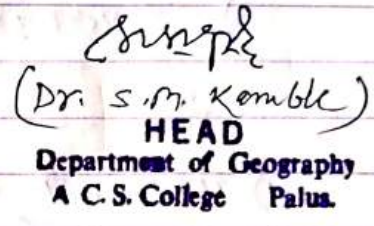 (Dr. S. M. Kamble)
HEAD
Department of Geography
A C. S. College Palus.